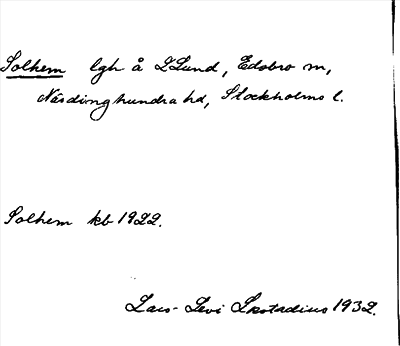 Solhem lgh å Lund, Edsbro sn,
Närdinghundra hd, Stockholms l.
Solhem kb 1922.
Lars-Levi Læstadius 1932.